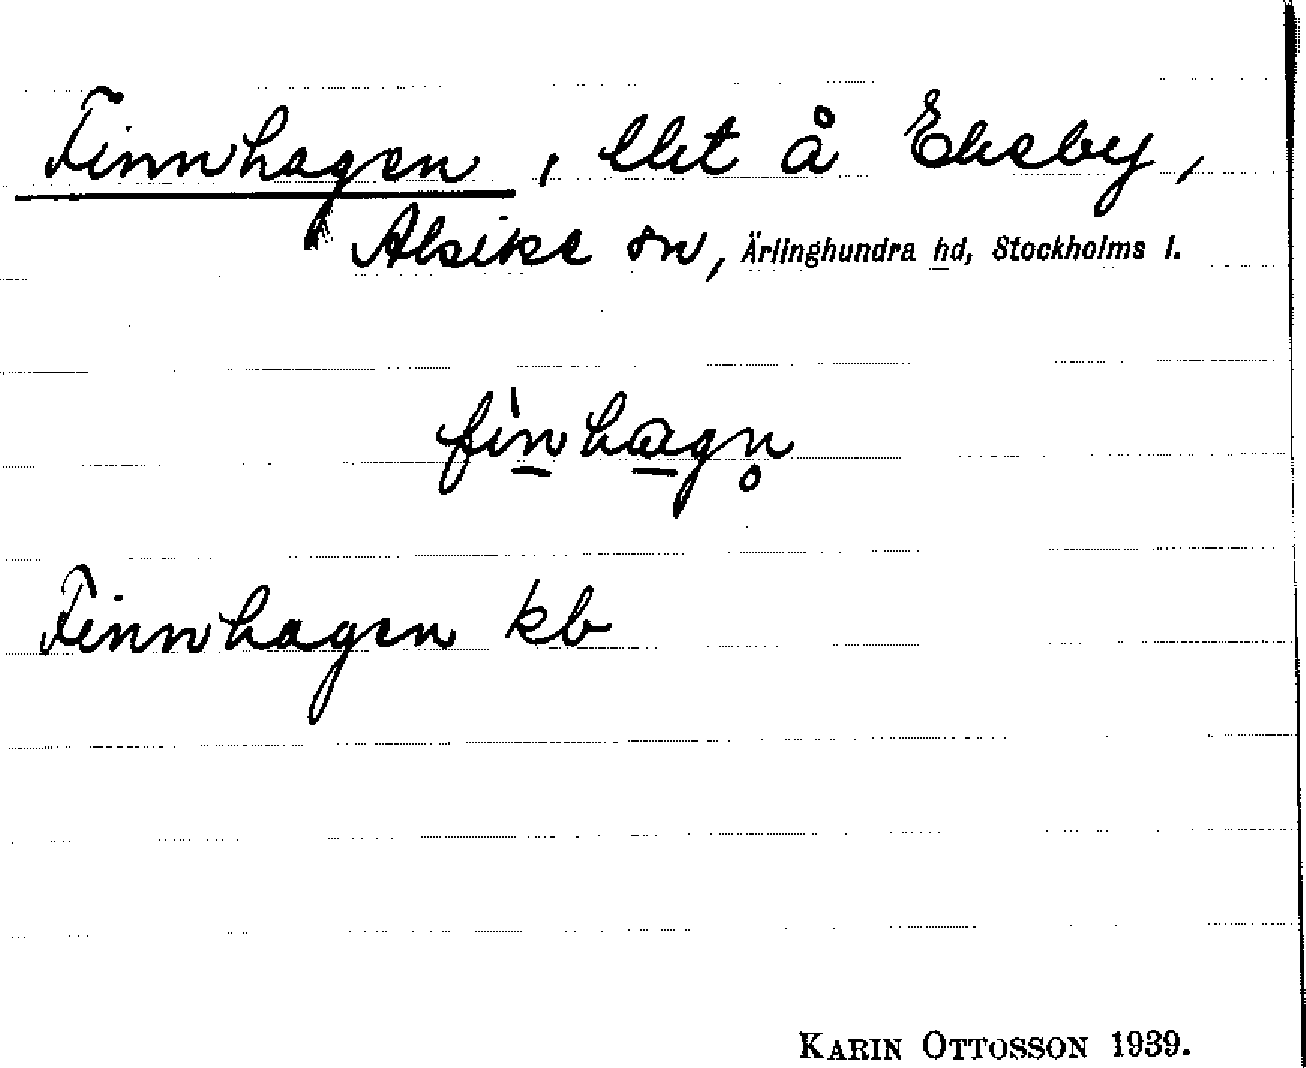 Finnhagen, lht å Ekeby,
Alsike sn, Ärlinghundra hd, Stockholms l.
fìn̠ha̠gn̥
Finnhagen kb
KARIN OTTOSSON 1939.